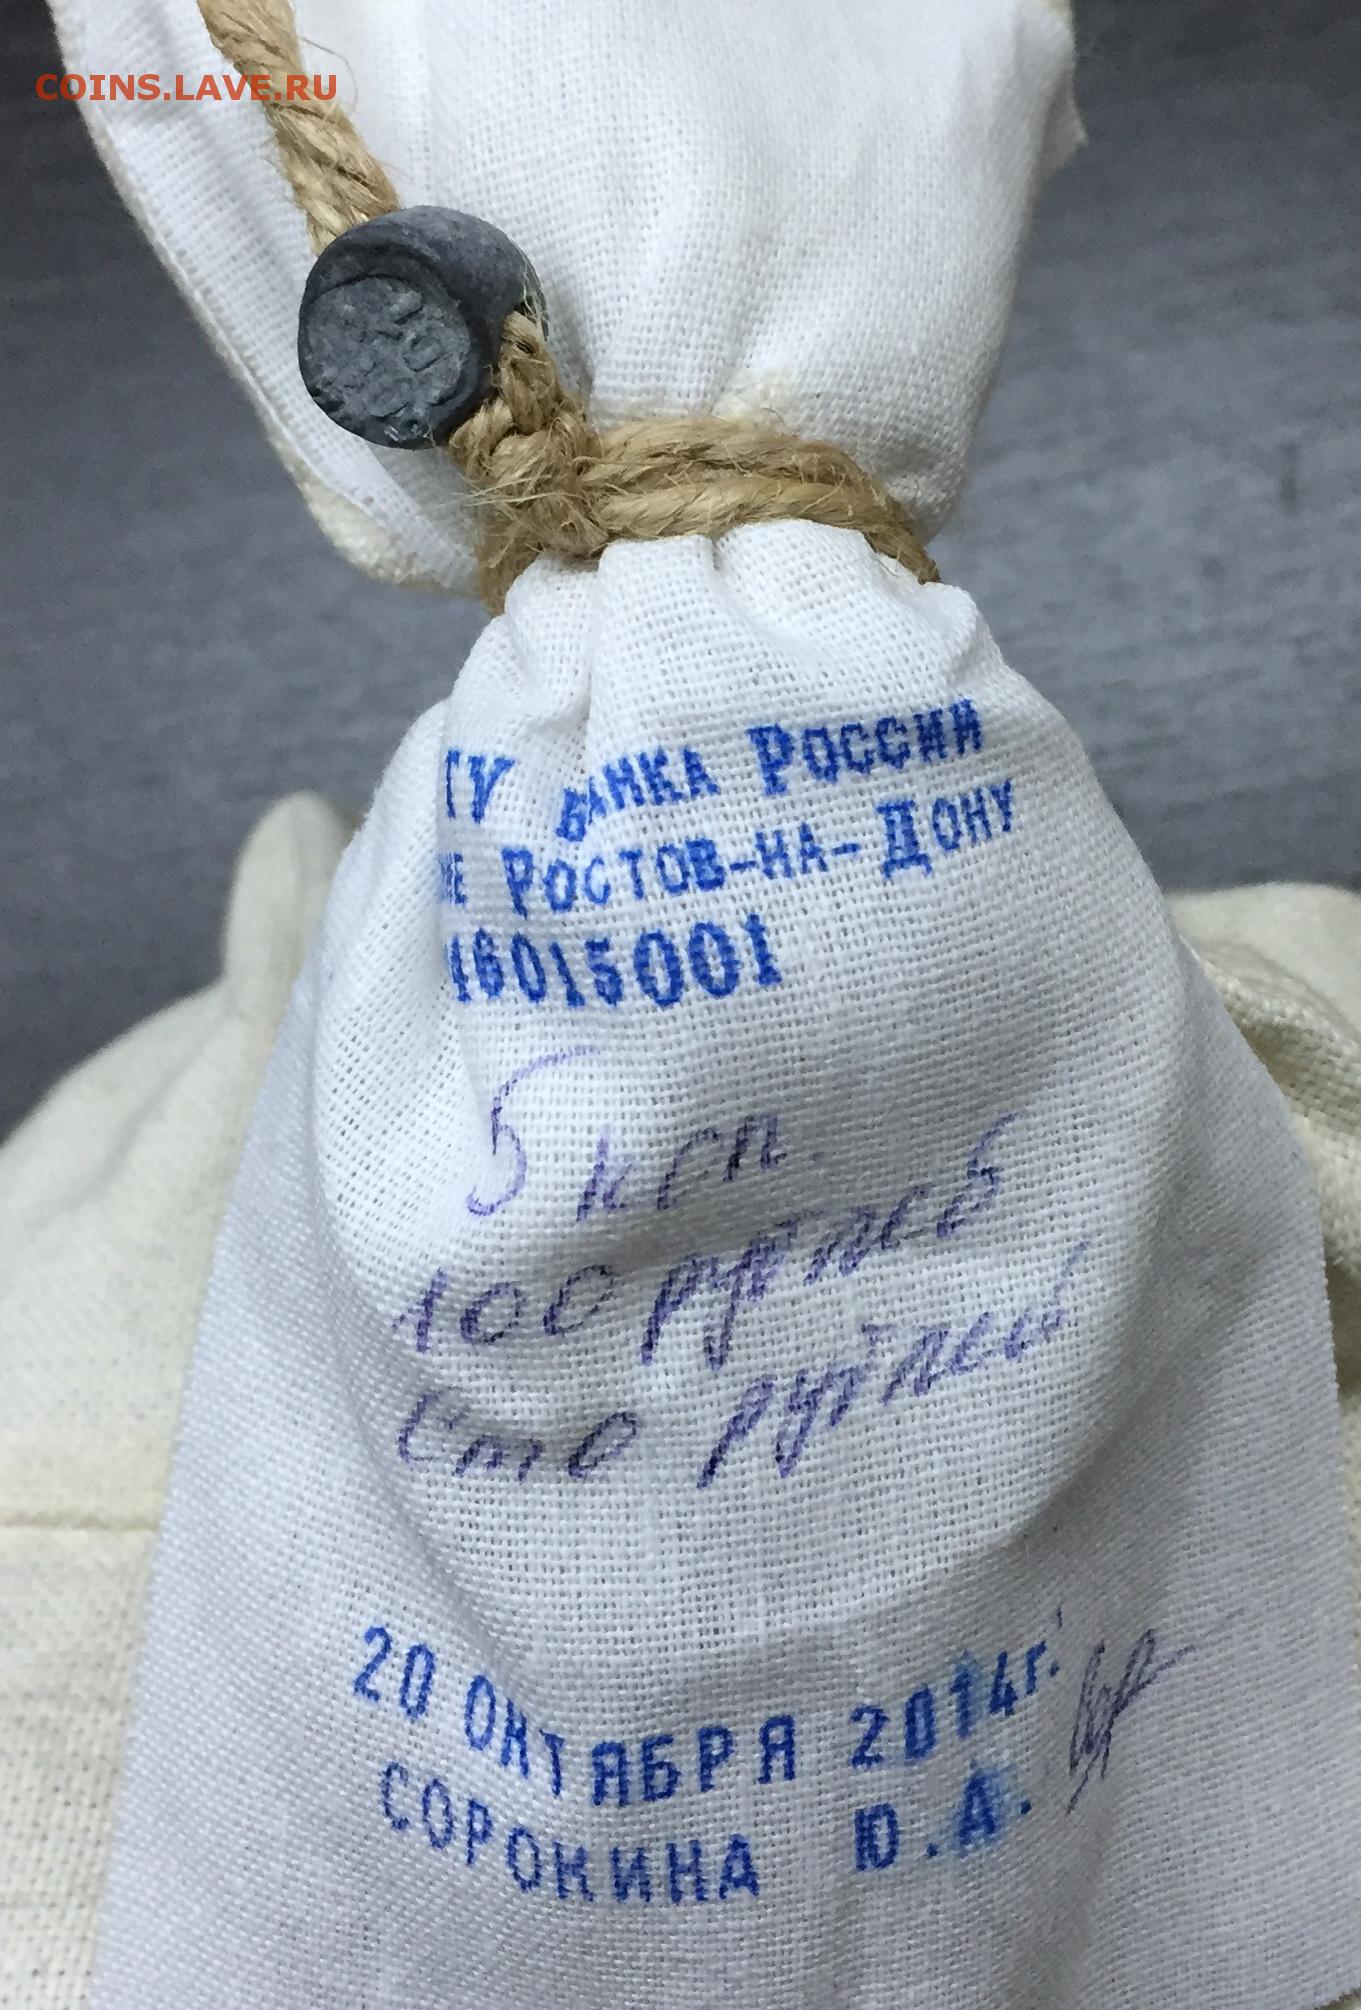 COINS.LAVE.RU
ГУ БАНКА РОССИИ
РОСТОВ-НА-ДОНУ
46015001
5 коп.
100 рублей
Сто рублей
20 ОКТЯБРЯ 2014г.
СОРОКИНА Ю.А.